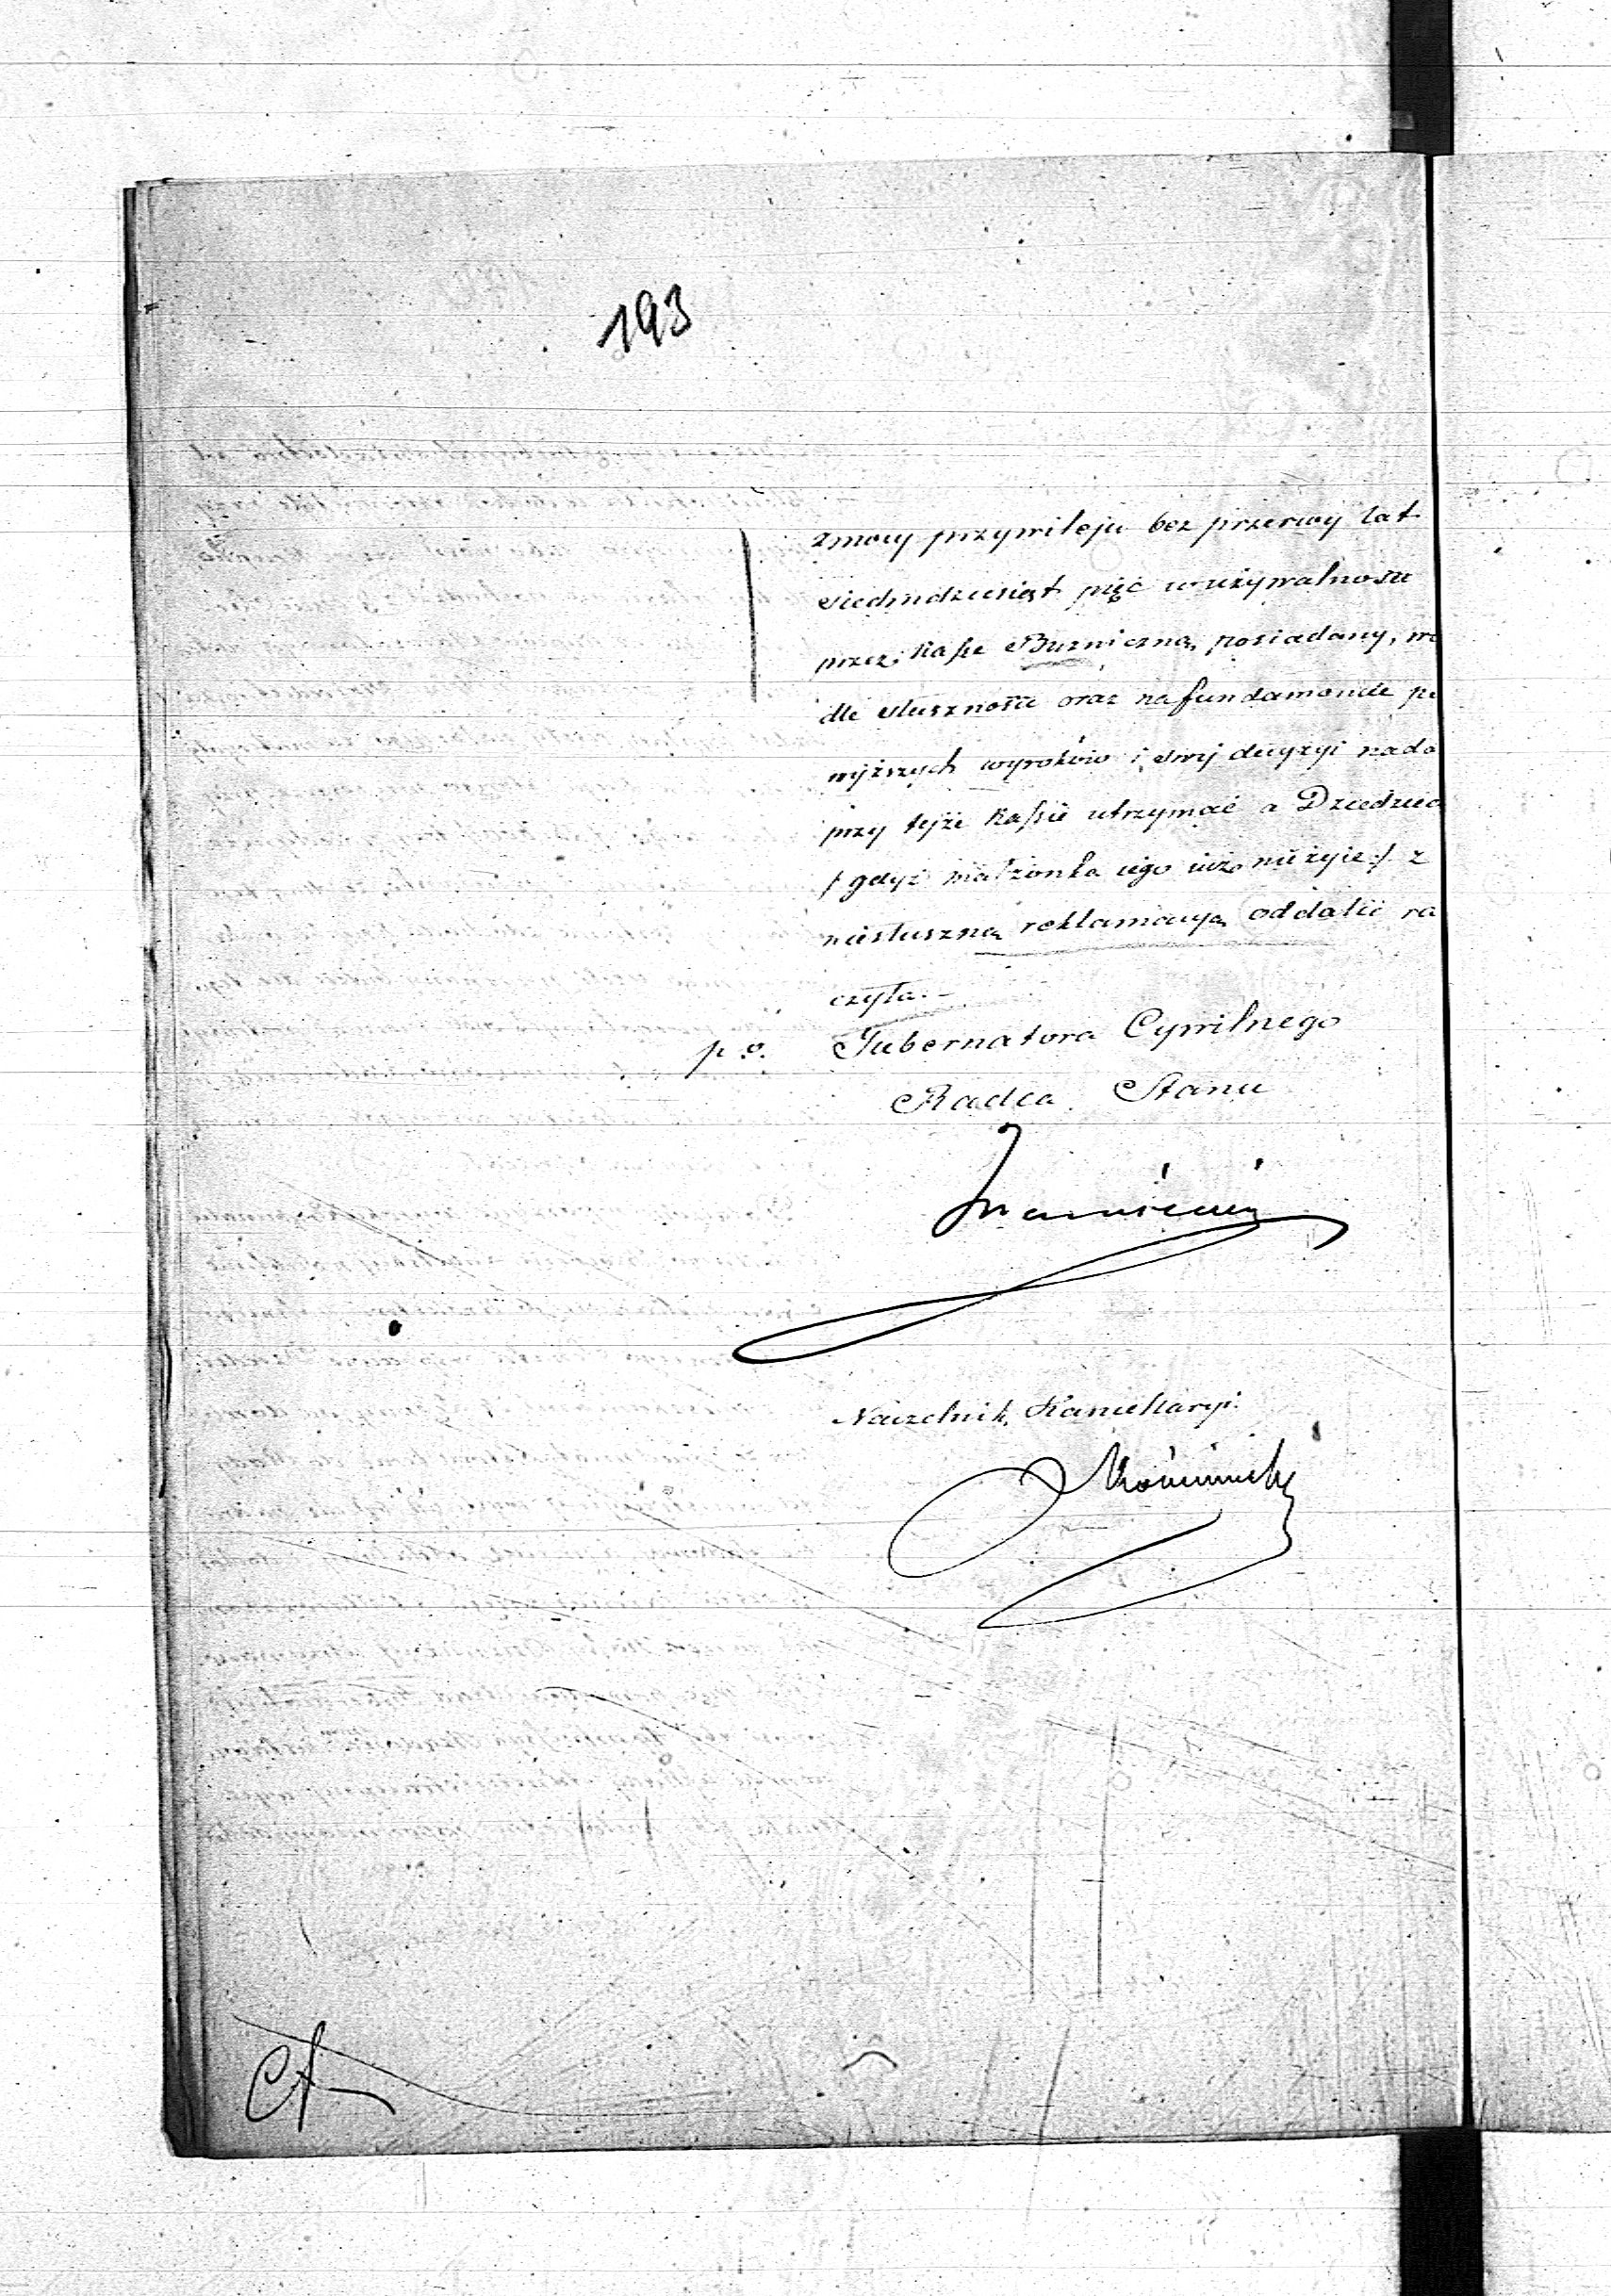 193
z mocy przywileju bez przerwy lat
siedmdziesiąt pięć w używalności
przez Kassę Buzniczną posiadany, we
dle słuszności oraz na fundamencie po
wyższych wyroków i swej decyzyi nada
przy tejże Kassie utrzymać a Dziedzica
/: gdyż małżonka iego iuż nie żyie :/ z
niesłuszną reklamacyą oddalić ra
czyła.–
p. o. Gubernatora Cywilnego
Radca Stanu
Naczelnik Kancellaryi